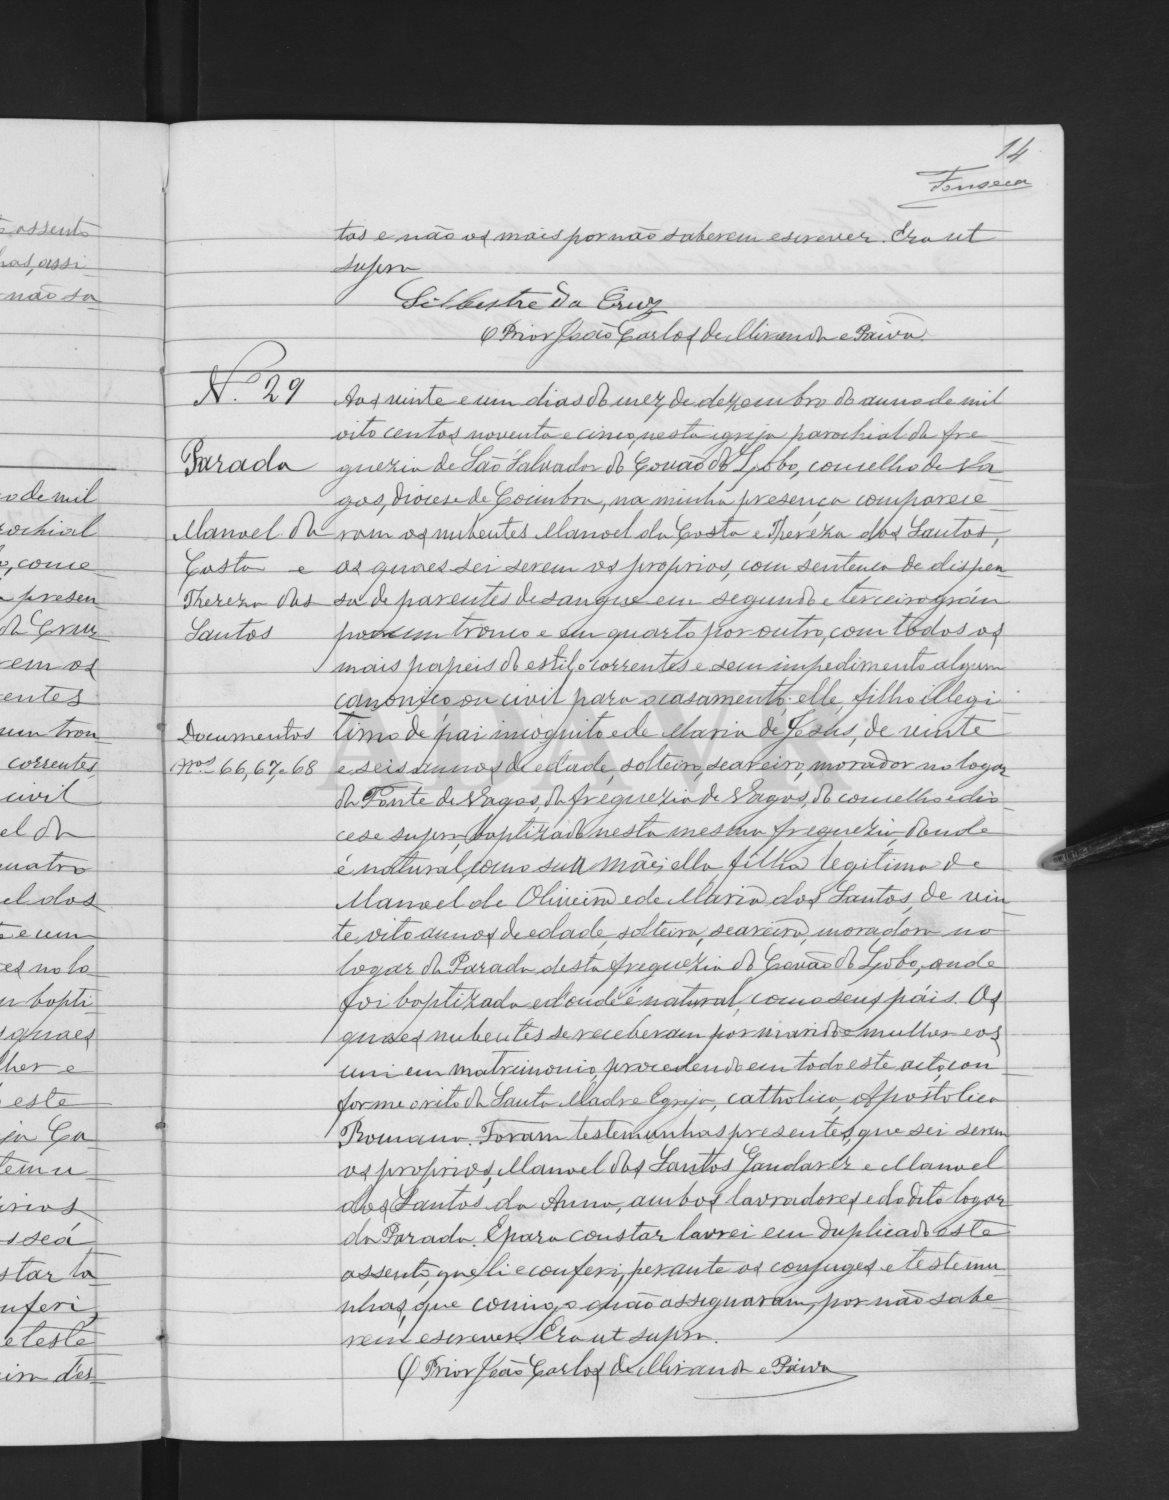 14
Fonseca
tas e não os mais por não saberem escrever. Era ut
supra
Silbestre da Cruz
O Prior João Carlos de Miranda e Paiva.
N.º 29
Parada
Manoel da
Costa e
Thereza dos
Santos
Documentos
Nos 66, 67, e 68
Aos vinte e um dias do mez de dezembro do anno de mil
oito centos noventa e cinco, nesta igreja parochial da fre-
guezia de São Salvador do Covão do Lobo, concelho de Va-
gos, diocese de Coimbra, na minha presença comparece-
ram os nubentes Manoel da Costa e Thereza dos Santos,
os quaes sei serem os proprios, com sentença de dispen-
sa de parentes de sangue em segundo e terceiro gráu
por um tronco e em quarto por outro, com todos os
mais papeis do estilo correntes e sem impedimento algum
canonico ou civil para o casamento; elle, filho illegi-
timo de pai incognito e de Maria de Jesus, de vinte
e seis annos de edade, solteiro, seareiro, morador no logar
da Ponte de Vagos, da freguezia de Vagos, do concelho e dio-
cese supra, baptizado nesta mesma freguezia, donde
é natural, como sua mãe; ella, filha legitima de
Manoel de Oliveira e de Maria dos Santos, de vin-
te oito annos de edade, solteira, seareira, moradora no
logar da Parada desta freguezia do Covão do Lobo, onde
foi baptizada e donde é natural, como seus páis. Os
quaes nubentes se receberam por marido e mulher e os
uni em matrimonio, procedendo em todo este acto, con
forme o rito da Santa Madre Egreja, catholica, Apostolica
Romana. Foram testemunhas presentes, que sei serem
os proprios, Manoel dos Santos Gandarez e Manoel
dos Santos da Anna, ambos lavradores e do dito logar
da Parada. E para constar lavrei em duplicado este
assento, que li e conferi, perante os conjuges e testemu-
nhas, que comigo não assignaram, por não sabe-
rem escrever. Era ut supra.
O Prior João Carlos de Miranda e Paiva